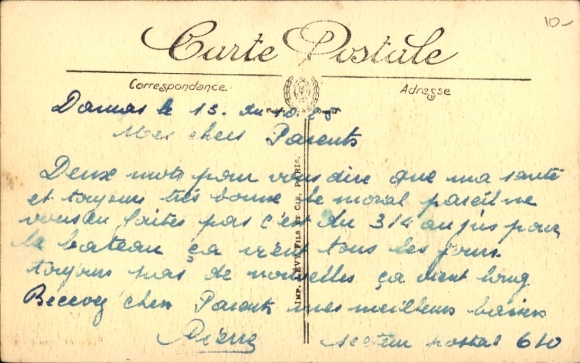 10-
Carte Postale
Correspondance
Adresse
Damas le 13. du 10.
Mes chers Parents
Deux mots pour vous dire que ma santé
et toujours très bonne le moral pareil ne
vous en faites pas c'est du 314 au jus pour
le bateau ça vient tous les jours
toujours pas de nouvelles ça vient long
Recevez chers Parents mes meilleurs baisers
Pierre Secteur postal 610
IMP. LÉVY FILS ET CIE, PARIS.